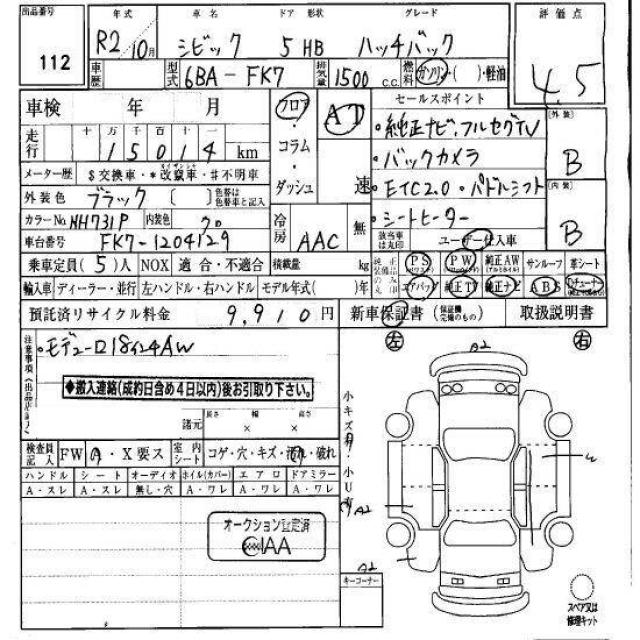 出品番号 112
年式 R2/10月
車名 シビック
ドア 形状 5 HB
グレード ハッチバック
評価点 4.5
車歴
型式 6BA-FK7
排気量 1500 C.C.
燃料 ガソリン・( )・軽油
車検 年 月
フロア・コラム・ダッシュ
AT 速
セールスポイント
・純正ナビ,フルセグTV
・バックカメラ
・ETC2.0・パドルシフト
・シートヒーター
外装 B
内装 B
走行 十万千百十一 15014 km
メーター歴 $交換車・*改竄車・#不明車
外装色 ブラック 〔 〕 色替は色替車と記入
カラーNo. NH731P 内装色 クロ
車台番号 FK7-1204129
冷房 AAC
無
該当車は丸印 ユーザー仕入車
乗車定員 (5)人 NOX 適合・不適合 積載量 kg
純正装備品のみ丸印
PS PW 純正AW サンルーフ 革シート
エアバッグ 純正TV 純正ナビ ABS
輸入車 ディーラー・並行 左ハンドル・右ハンドル モデル年式( )年
預託済リサイクル料金 9,910円
新車保証書(保証継続完備のもの) 取扱説明書
注意事項(出品店申告)
・モデューロ18インチAW
◆搬入連絡(成約日含め4日以内)後お引取り下さい。
諸元 長さ × 幅 × 高さ
検査員記入 FW A・X要ス 室内シート コゲ・穴・キズ・汚れ・破れ
ハンドル シート オーディオ ホイル(カバー) エアロ ドアミラー
A・スレ A・スレ 無し・穴 A・ワレ A・ワレ A・ワレ
オークション査定済
JAAI
小キズ有・小U有
左
右
A2
A2
A2
W
キーコーナー
スペア又は
修理キット